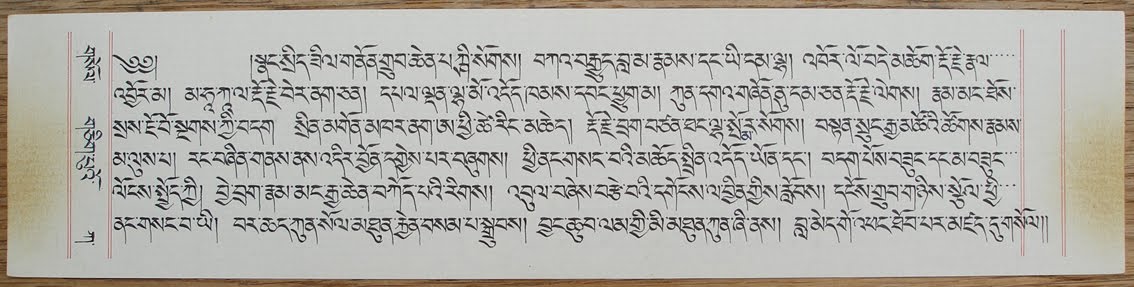 ༄༅། །སྣང་སྲིད་ཟིལ་གནོན་གྲུབ་ཆེན་པཀྵི་སོགས། བཀའ་བརྒྱུད་བླ་མ་རྣམས་དང་ཡི་དམ་ལྷ། འཁོར་ལོ་བདེ་མཆོག་རྡོ་རྗེ་རྣལ
འབྱོར་མ། མ་ཧཱ་ཀཱ་ལ་རྡོ་རྗེ་བེར་ནག་ཅན། དཔལ་ལྡན་ལྷ་མོ་འདོད་ཁམས་དབང་ཕྱུག་མ། ཀུན་དགའ་གཞོན་ནུ་དམ་ཅན་རྡོ་རྗེ་ལེགས། རྣམ་མང་ཐོས་
སྲས་ངོ་བོ་སྔགས་ཀྱི་བདག སྲིན་མགོན་མཁར་ནག་ཨ་ཕྱི་ཚེ་རིང་མཆེད། རྡོ་རྗེ་བྲག་བཙན་ཐང་ལྷ་སྤོམྲ་སོགས། བསྟན་སྲུང་རྒྱ་མཚོའི་ཚོགས་རྣམས
མ་ལུས་པ། རང་བཞིན་གནས་ནས་འདིར་བྱོན་དགྱེས་པར་བཞུགས། ཕྱི་ནང་གསང་བའི་མཆོད་སྤྲིན་འདོད་ཡོན་དང་། བདག་པོས་བཟུང་དང་མ་བཟུང
ལོངས་སྤྱོད་ཀྱི། བྱེ་བྲག་རྣམ་མང་རྒྱ་ཆེན་བཀོད་པའི་རིགས། འབུལ་བཞེས་བརྩེ་བའི་དགོངས་ལ་བྱིན་གྱིས་རློབས། དངོས་གྲུབ་གཉིས་སྩོལ་ཕྱི
ནང་གསང་བ་ཡི། བར་ཆད་ཀུན་སོལ་མཐུན་རྐྱེན་བསམ་པ་སྒྲུབས། བྱང་ཆུབ་ལམ་གྱི་མི་མཐུན་ཀུན་ཞི་ནས། བླ་མེད་གོ་འཕང་ཐོབ་པར་མཛད་དུ་གསོལ།།